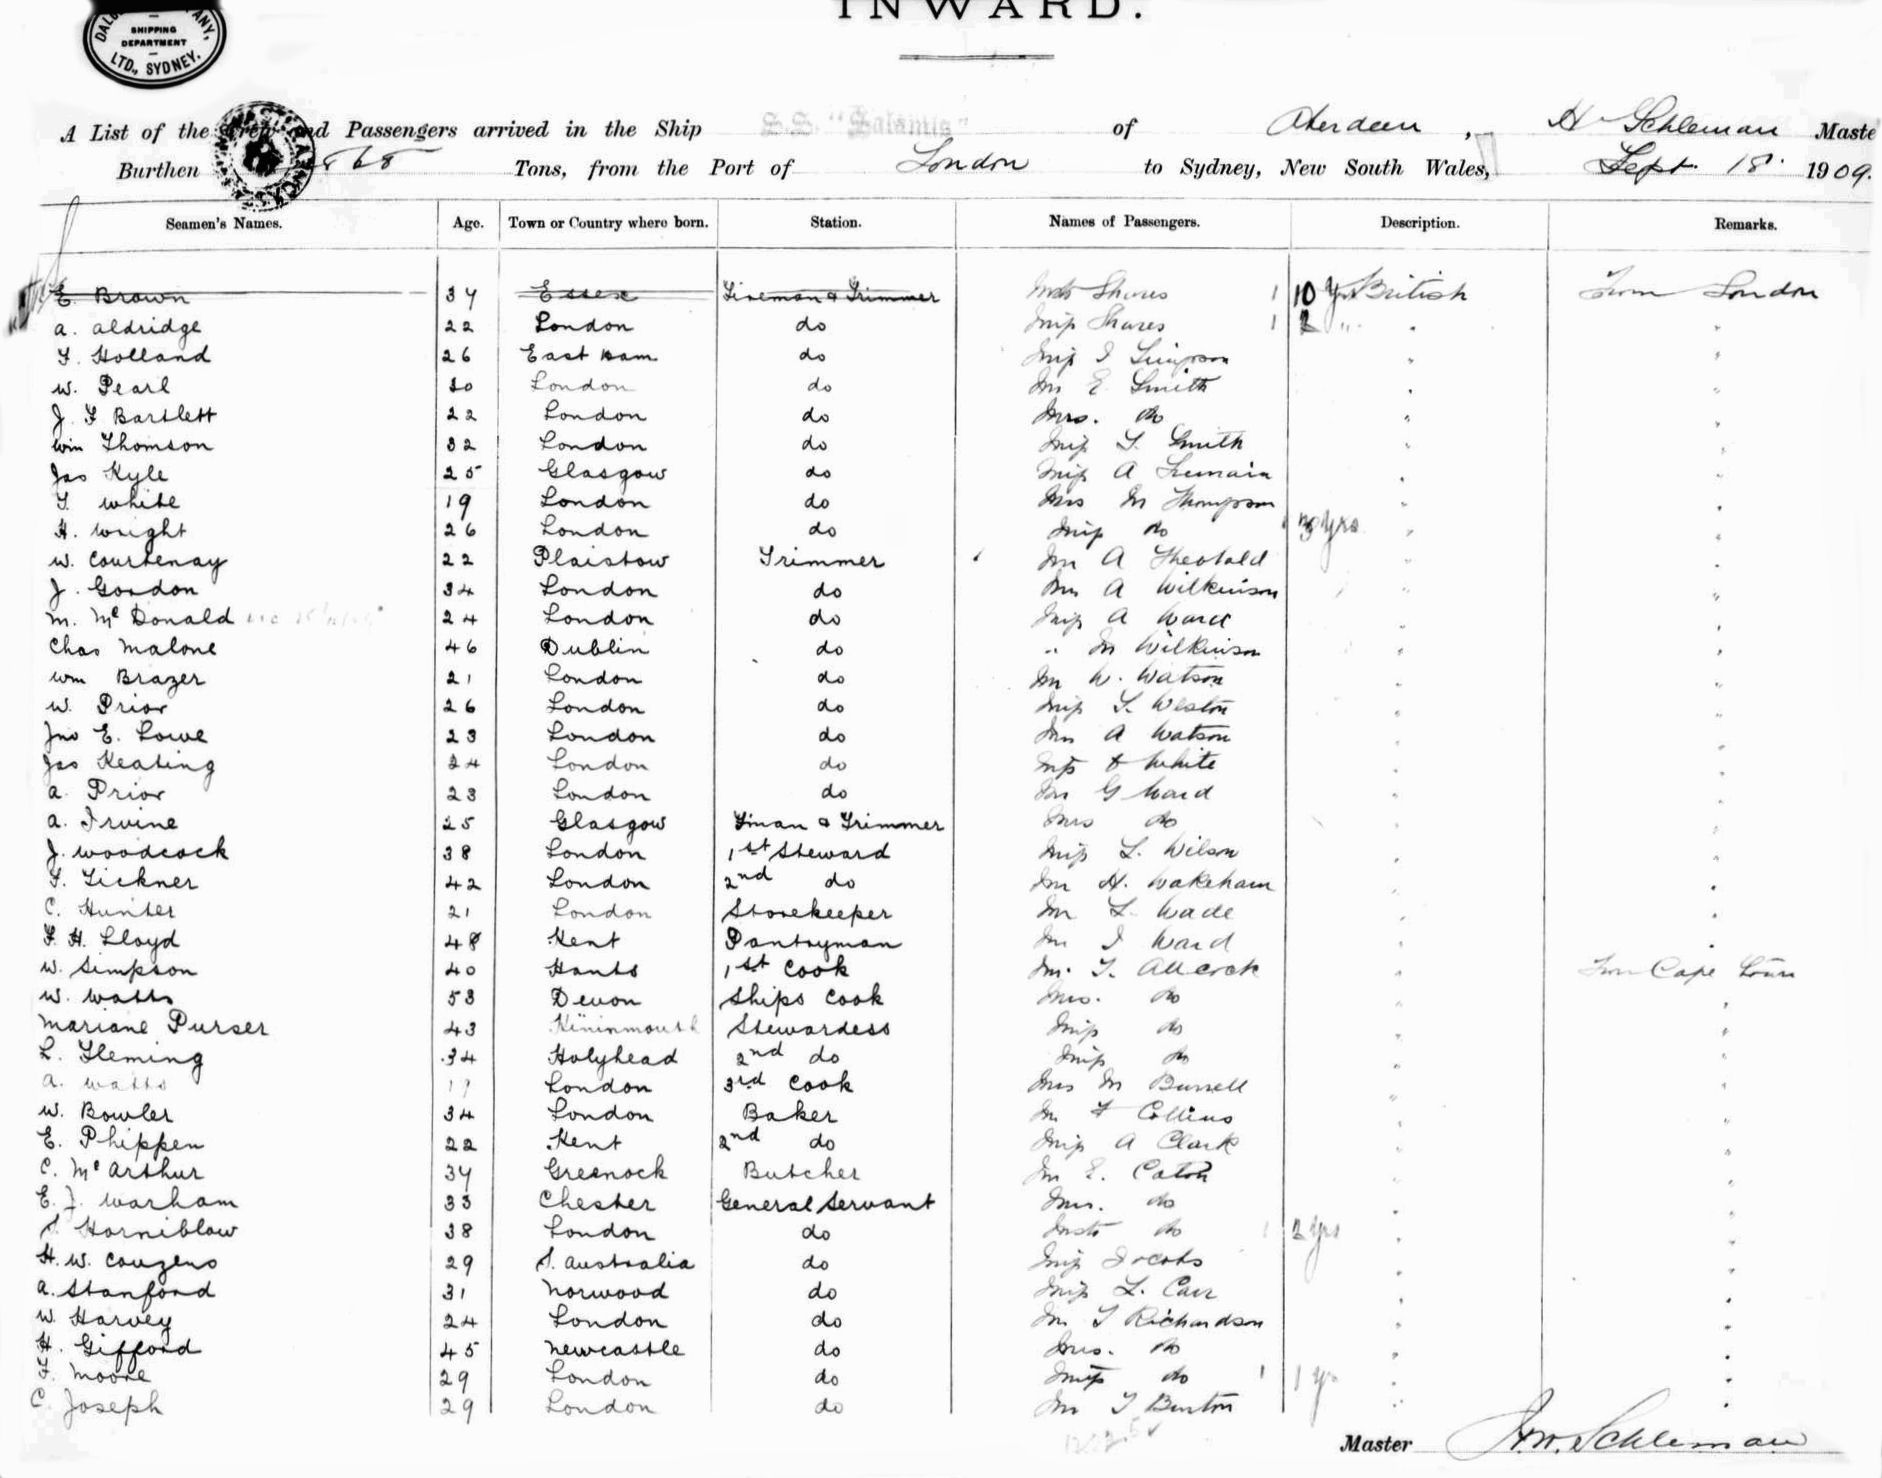 INWARD.
SHIPPING
DEPARTMENT
LTD., SYDNEY.
A List of the Crew and Passengers arrived in the Ship S.S. "Salamis" of Aberdeen, H Schleman Maste
Burthen Tons, from the Port of London to Sydney, New South Wales, Sept. 18. 1909.
Seamen's Names. Age. Town or Country where born. Station. Names of Passengers. Description. Remarks.
E. Brown 34 Essex Fireman & Trimmer Mstr Shores 1 10 Yrs British From London
A. Aldridge 22 London do Miss Shores 1 2 " " "
F. Holland 26 East Ham do Miss I Simpson " "
W. Pearl London do Mr E. Smith " "
J. F Bartlett 22 London do Mrs. do " "
Wm Thomson 32 London do Miss T. Smith " "
Jas Kyle 25 Glasgow do Miss A Tremain " "
T. White 19 London do Mrs M Thompson " "
H. Wright 26 London do Miss do 1 Yrs " "
W. Courtenay 22 Plaistow Trimmer Mr A Theobald " "
J. Gordon 34 London do Mr A Wilkinson " "
M. McDonald 24 London do Miss A Ward " "
Chas Malone 46 Dublin do " M Wilkinson " "
Wm Brazer 21 London do Mr W. Watson " "
W. Prior 26 London do Miss T. Weston " "
Jno E. Lowe 23 London do Mr A Watson " "
Jas Keating 24 London do Miss White " "
A. Prior 23 London do Mr G Ward " "
A. Irvine 25 Glasgow Fman & Trimmer Mrs do " "
J. Woodcock 38 London 1st Steward Miss L. Wilson " "
F. Tickner 42 London 2nd do Mr H. Wakeham " "
C. Hunter 21 London Storekeeper Mr L. Wade " "
F. H. Lloyd 48 Kent Pantryman Mr I Ward " "
W. Simpson 40 Hants 1st Cook Mr. T. Allcock " From Cape Town
W. Watts 53 Devon Ships Cook Mrs. do " "
Mariane Purser 43 Stewardess Miss do " "
L. Fleming 34 Holyhead 2nd do Miss do " "
A. Watts London 3rd Cook Mrs M Burrell " "
W. Bowler 34 London Baker Mr F Collins " "
E. Phippen 22 Kent 2nd do Miss A Clark " "
C. McArthur 34 Greenock Butcher Mr E. Caton " "
E. J. Warham 33 Chester General Servant Mrs. do " "
S. Horniblow 38 London do Mstr do 1 2 yrs " "
H. W. Couzens 29 S. Australia do Miss Jacobs " "
A. Stanford 31 Norwood do Miss L. Carr " "
W. Harvey 24 London do Mr T Richardson " "
H. Gifford 45 Newcastle do Mrs. do " "
F. Moore 29 London do Miss do 1 1 yr " "
C. Joseph 29 London do Mr T Burton " "
Master H.W. Schleman